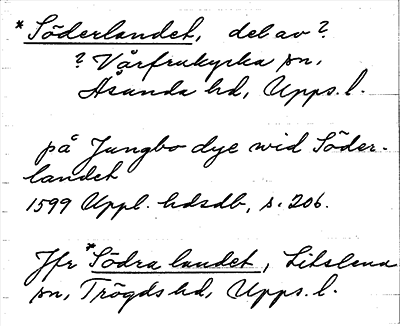 *Söderlandet, del av?
? Vårfrukyrka sn,
Åsunda hd, Upps. l.
på Jungbo dye wid Söder-
landet
1599 Uppl. hdsdb, s. 206.
Jfr *Södra landet, Litslena
sn, Trögds hd, Upps. l.